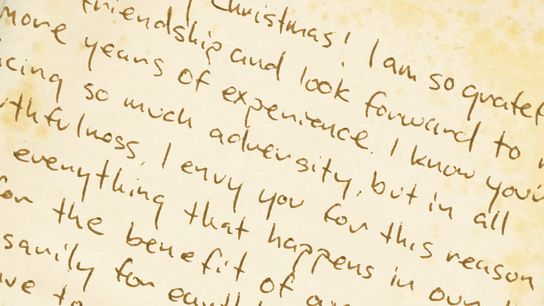 Christmas! I am so gratef
friendship and look forward to
more years of experience. I know you'v
so much adversity, but in all
I envy you for this reason
everything that happens in our
for the benefit of
for